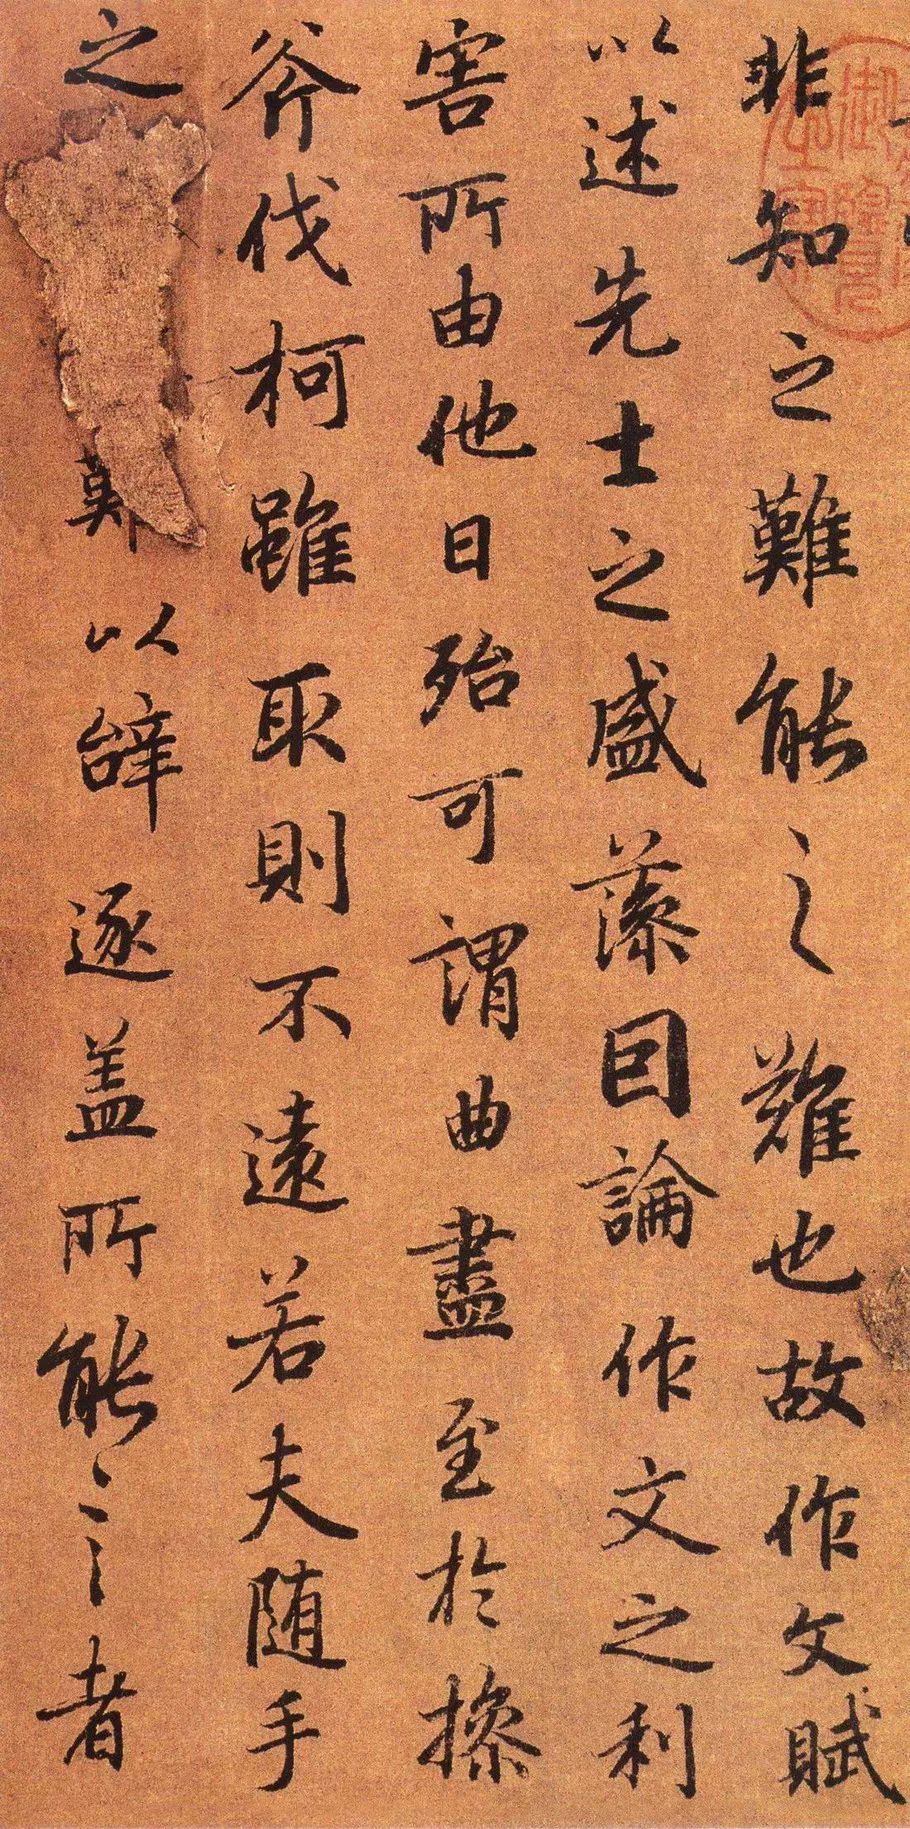 非知之難能之難也故作文賦
以述先士之盛藻囙論作文之利
害所由他日殆可謂曲盡至於操
斧伐柯雖取則不遠若夫随手
之以辝逐盖所能言者